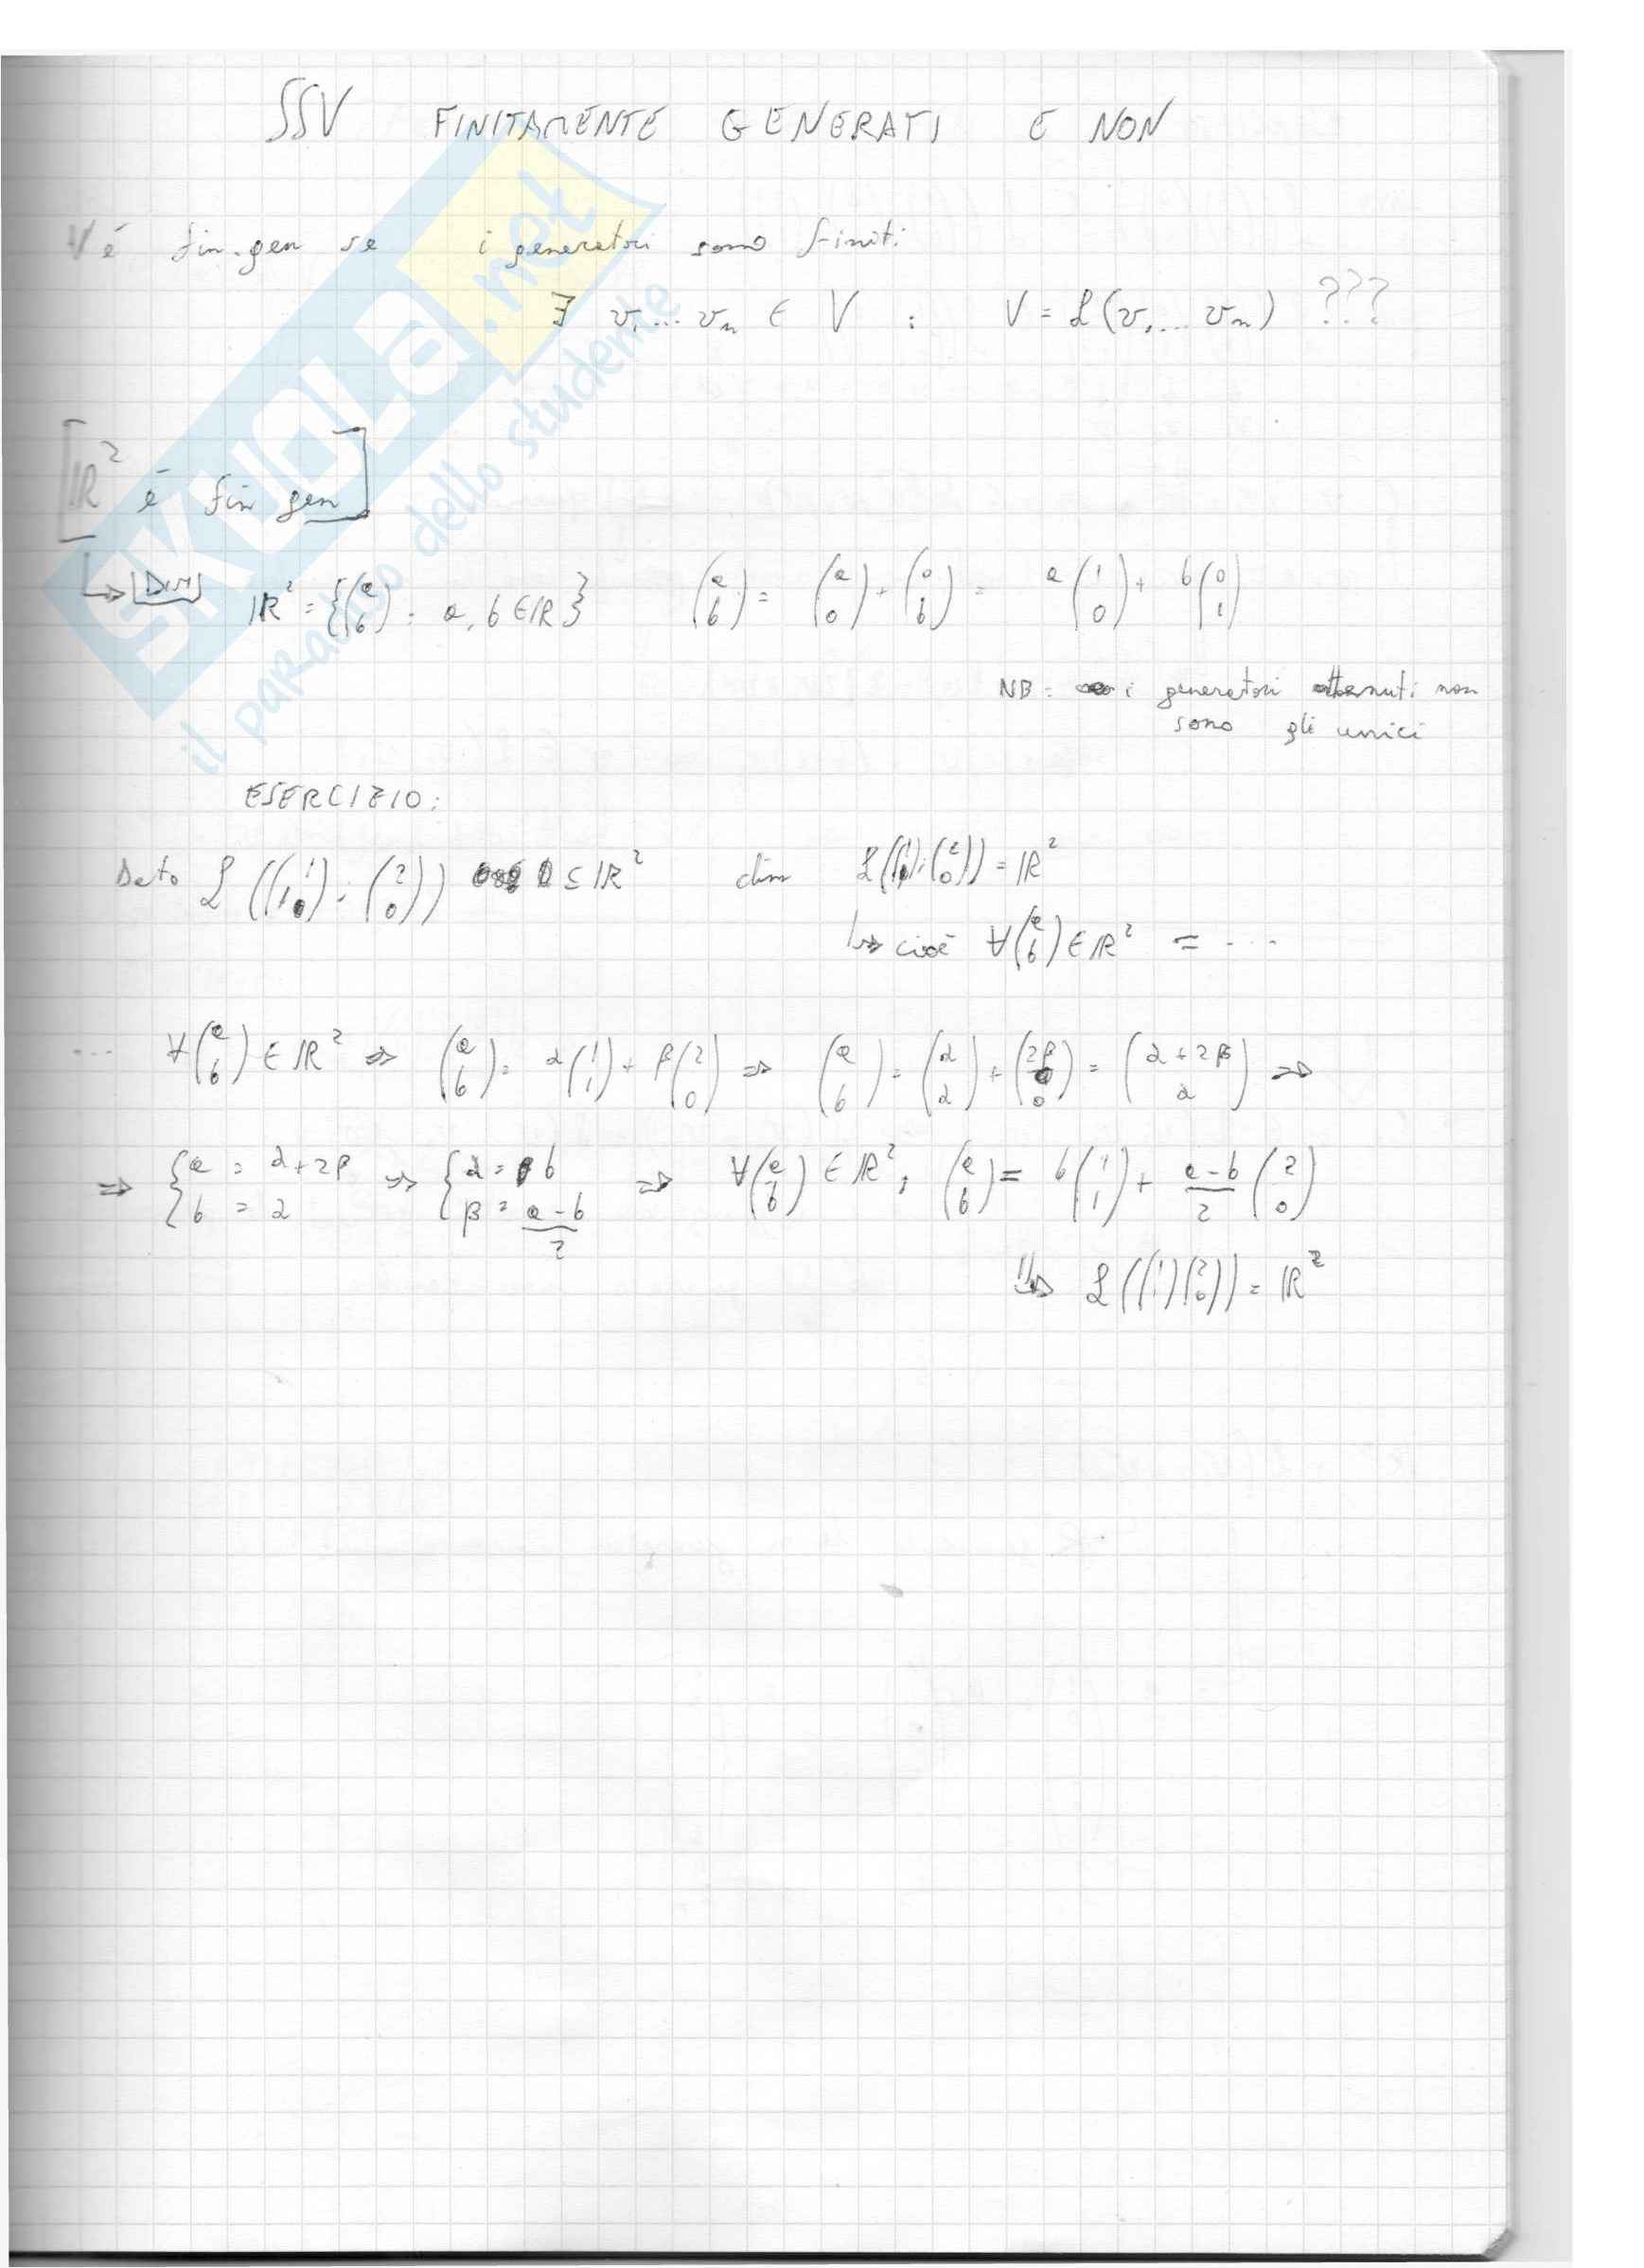 SSV FINITAMENTE GENERATI E NON
V é fin.gen se i generatori sono finiti
∃ v₁... vₙ ∈ V : V = ℒ(v₁... vₙ) ???
[ℝ² é fin gen]
↳ DIM ℝ² = {(a b) : a, b ∈ ℝ} (a b) = (a 0) + (0 b) = a(1 0) + b(0 1)
NB: i generatori ottenuti non
sono gli unici
ESERCIZIO:
Dato ℒ((1 1); (2 0)) ⊆ ℝ² dim ℒ((1 1); (2 0)) = ℝ²
↳ cioè ∀(a b) ∈ ℝ² = ...
... ∀(a b) ∈ ℝ² ⇒ (a b) = α(1 1) + β(2 0) ⇒ (a b) = (α α) + (2β 0) = (α+2β α) ⇒
⇒ {a = α+2β b = α ⇒ {α = b β = a-b/2 ⇒ ∀(a b) ∈ ℝ², (a b) = b(1 1) + a-b/2 (2 0)
⇒ ℒ((1 1)(2 0)) = ℝ²
SKUOLA.net
il paradiso dello studente